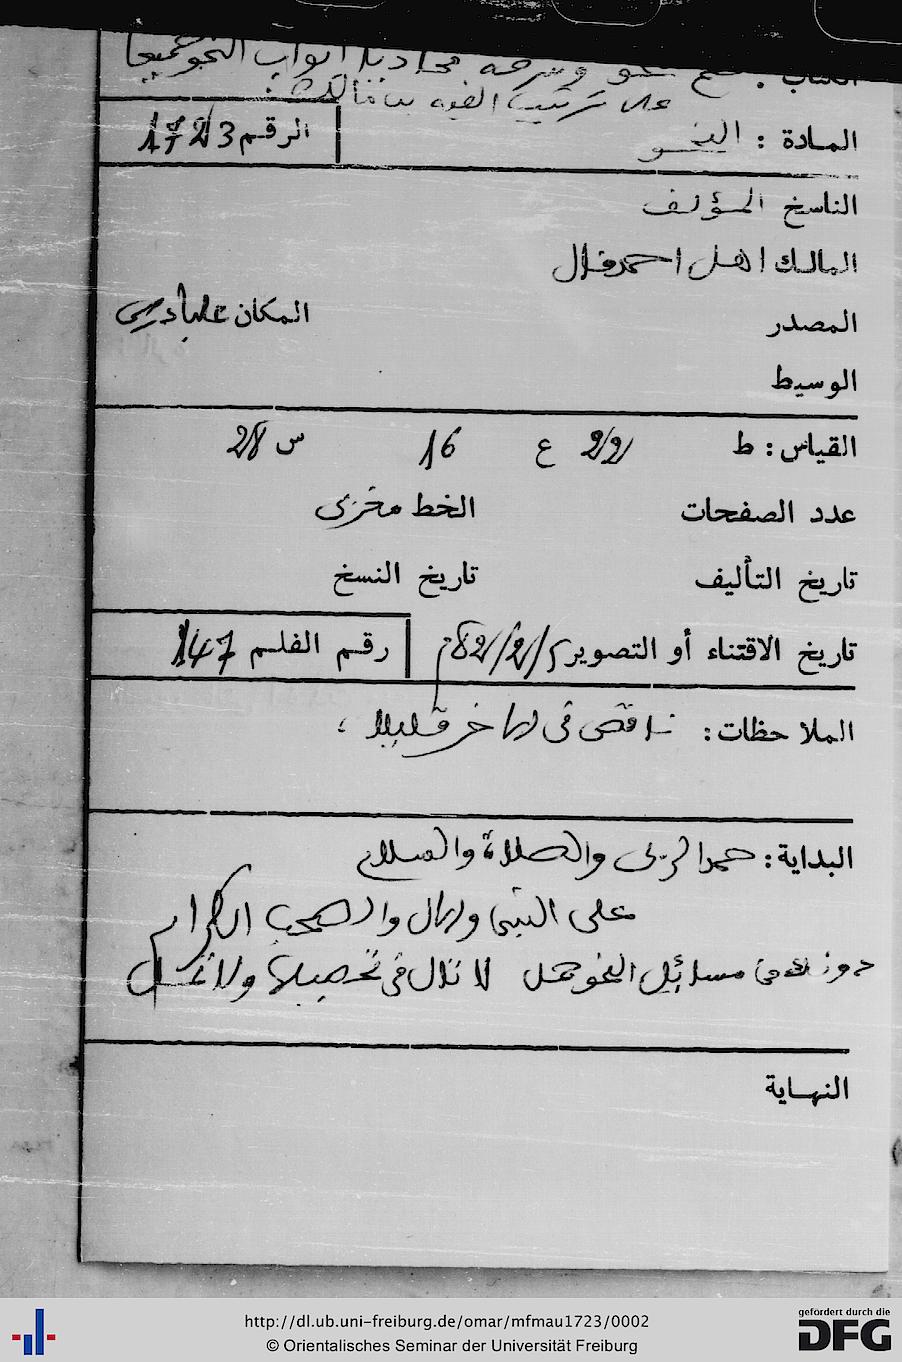 الكتاب : نظم نحو وشرحه محاديا ابواب النحو جميعا
على ترتيب الفية بن مالك :
المادة : النحو الرقم 1723
الناسخ المؤلف
المالك اهل احمد فال
المصدر المكان
الوسيط
القياس : ط 22 ع 16 س 28
عدد الصفحات الخط
تاريخ التأليف تاريخ النسخ
تاريخ الاقتناء أو التصوير رقم الفلم 147
الملاحظات : ناقص في الاخر قليلا ،
البداية : حمدا لربي والصلاة والسلام
على النبي والال والصحب الكرام
دونك من مسائل النحو لا تال في تحصيلها ولا تمل
النهاية
http://dl.ub.uni-freiburg.de/omar/mfmau1723/0002
© Orientalisches Seminar der Universität Freiburg
gefördert durch die
DFG